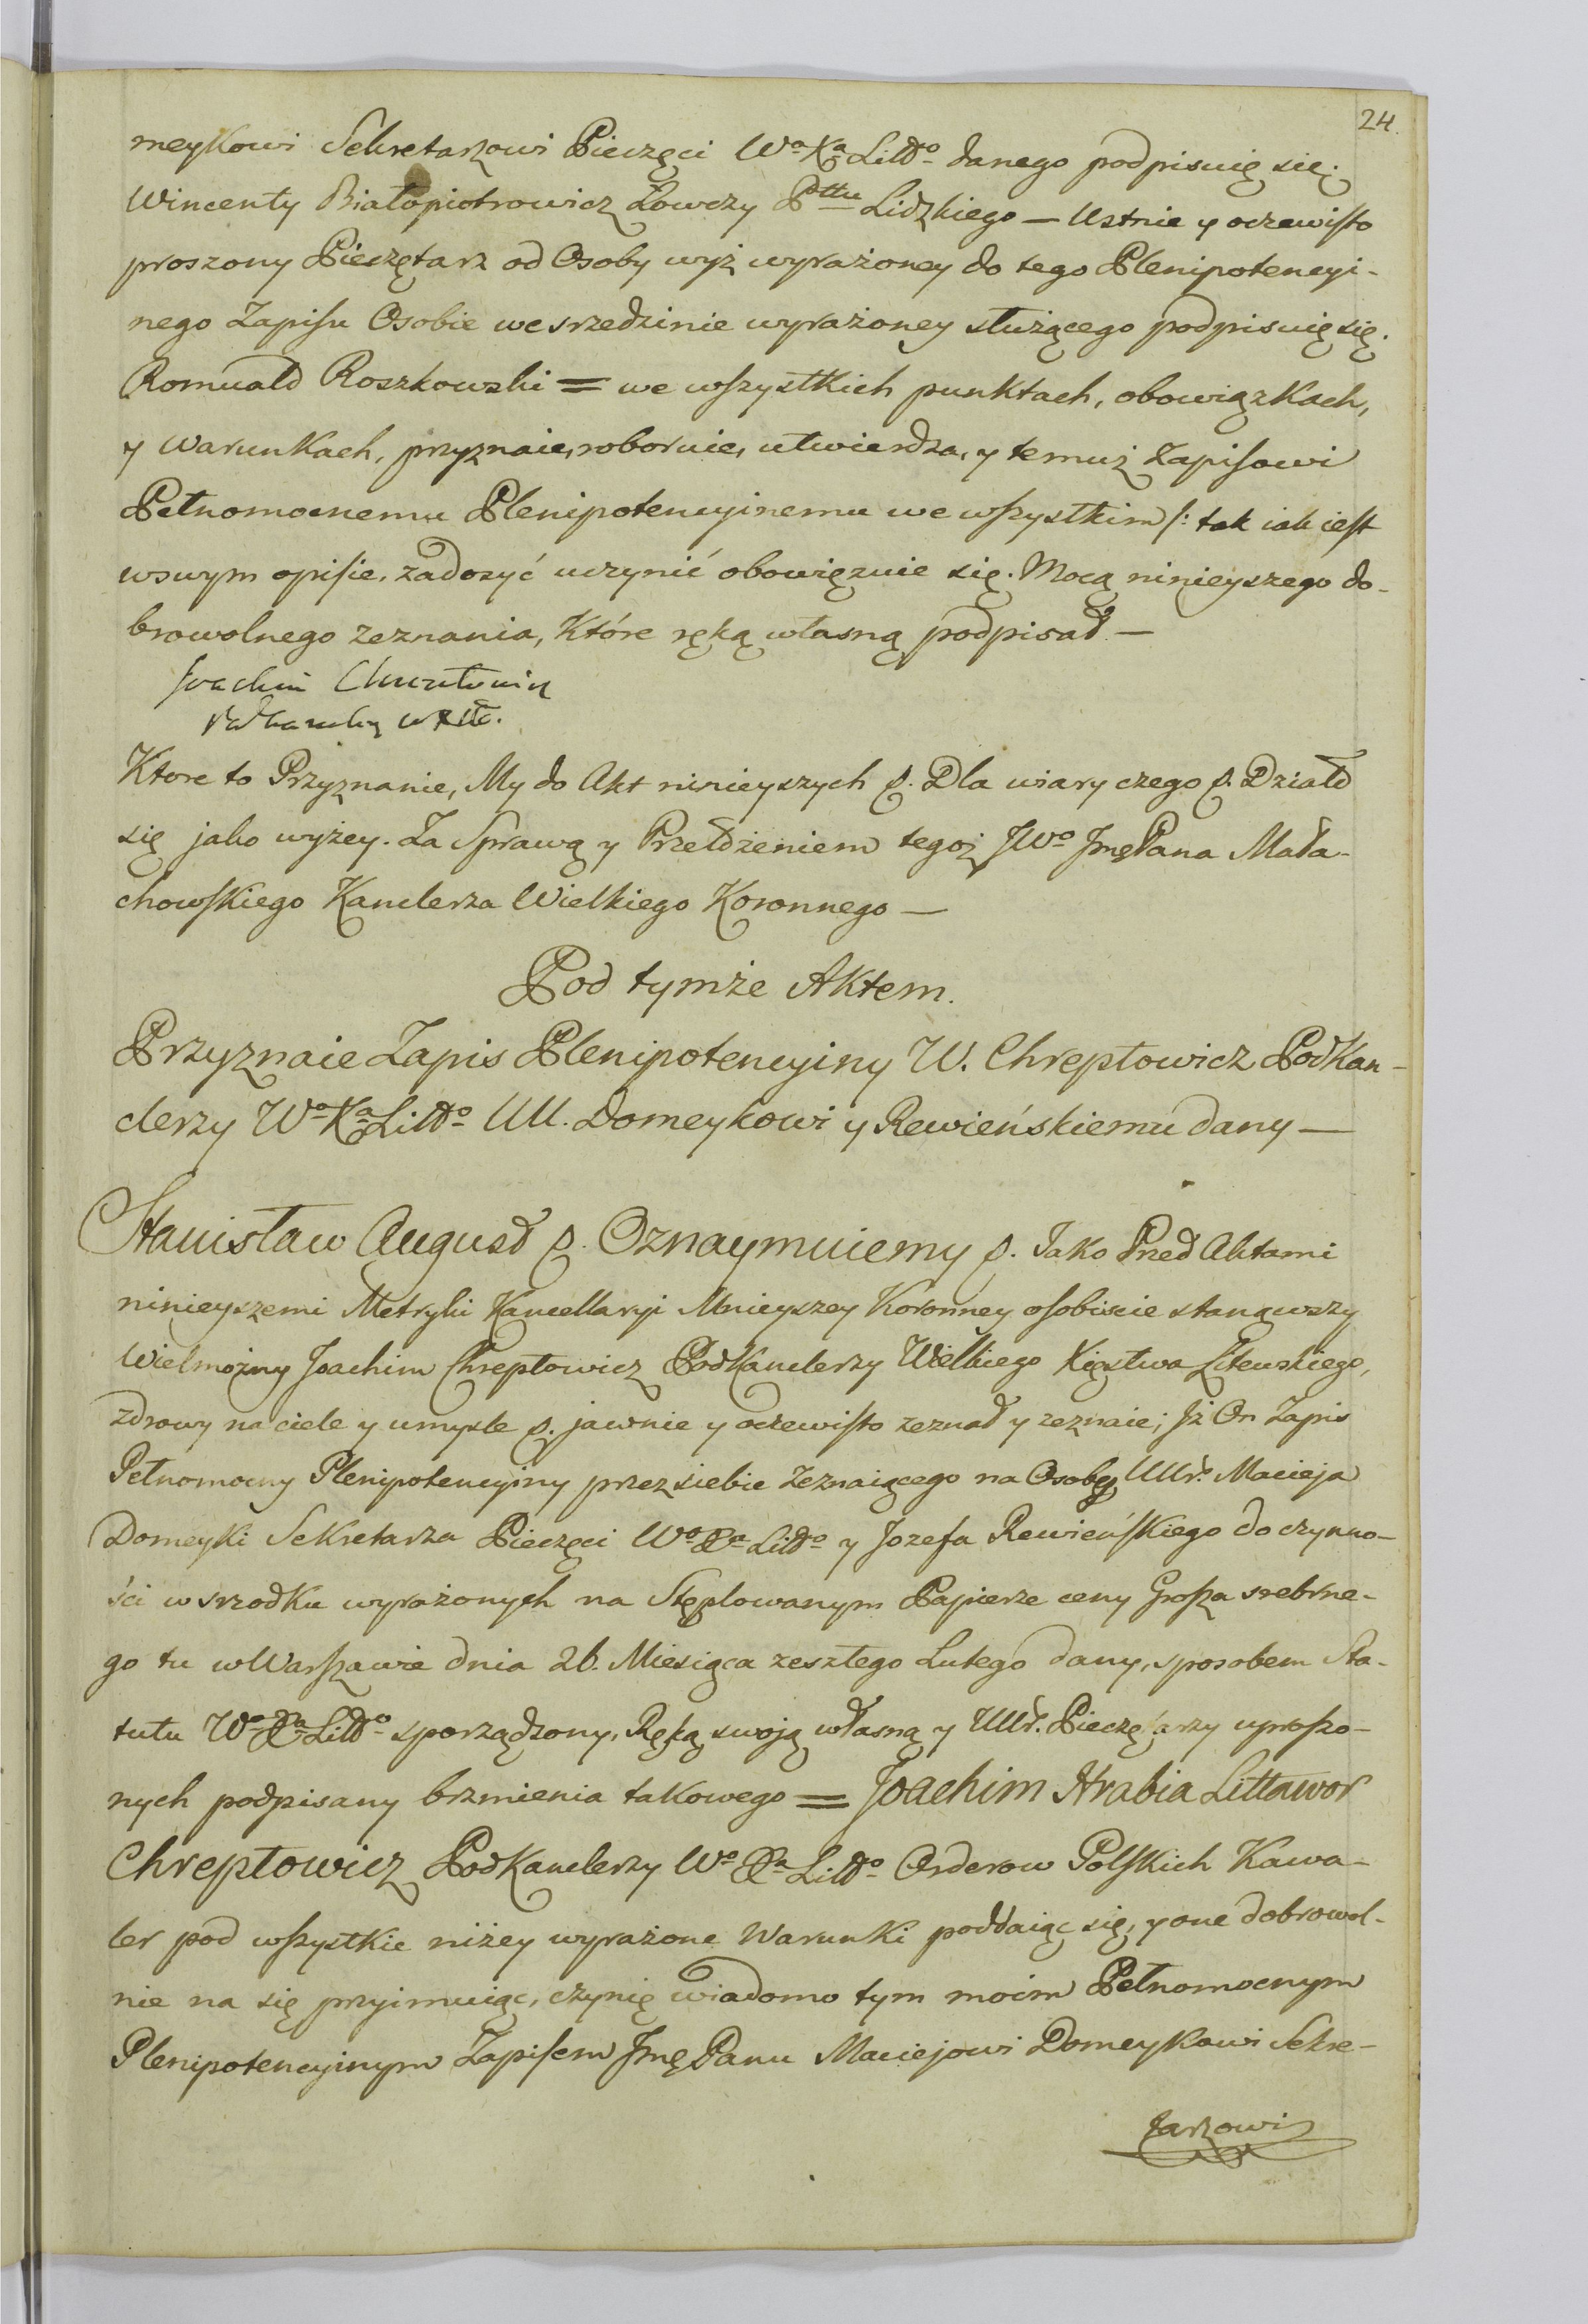 24.
meykowi Sekretarzowi Pieczęci Wo Xa Litto danego podpisuię się.
Wincenty Białopiotrowicz Łowczy Pttu Lidzkiego — Ustnie y oczewisto
proszony Pieczętarz od Osoby wyż wyrażoney do tego Plenipotencyi-
nego Zapisu Osobie we srzedzinie wyrażoney służącego podpisuię się.
Romuald Roszkowski = we wszystkich punktach, obowiązkach,
y warunkach, przyznaie, roboruie, utwierdza, y temuż Zapisowi
Pełnomocnemu Plenipotencyinemu we wszystkim /: tak iak iest
wswym opisie, zadosyć uczynić obowięzuie się. Mocą ninieyszego do-
browolnego zeznania, Które ręką własną podpisał. —
Joachim Chreptowicz
Podkanclerzy WXLitt.
Ktore to Przyznanie, My do Akt ninieyszych p. Dla wiary czego p. Działo
się jako wyżey. Za Sprawą y Przełożeniem tegoż JWo JmęPana Mała-
chowskiego Kanclerza Wielkiego Koronnego —
Pod tymże Aktem.
Przyznaie Zapis Plenipotencyiny W. Chreptowicz PodKan-
clerzy Wo Xa Littо UU. Domeykowi y Rewieńskiemu dany —
Stanisław August p. Oznaymuiemy p. Jako Przed Aktami
ninieyszemi Metryki Kancellaryi Mnieyszey Koronney osobiscie stanąwszy
Wielmożny Joachim Chreptowicz PodKanclerzy Wielkiego Xięstwa Litewskiego,
zdrowy na ciele y umysle p. jawnie y oczewisto zeznał y zeznaie; Jż On Zapis
Pełnomocny Plenipotencyiny przez siebie zeznaiącego na Osoby UUr. Macieja
Domeyki Sekretarza Pieczęci Wo Xa Littо y Jozefa Rewieńskiego do czynno-
ści w srzodku wyrażonych na Stęplowanym Papierze ceny Grosza srebrne-
go tu w Warszawie dnia 26. Miesiąca zeszłego Lutego dany, sposobem Sta-
tutu Wo Xa Littо sporządzony, Ręką swoją własną y UUr. Pieczętarzy uproszo-
nych podpisany brzmienia takowego = Joachim Hrabia Littawor
Chreptowicz PodKanclerzy Wo Xa Littо Orderow Polskich Kawa-
ler pod wszystkie niżey wyrażone Warunki poddaiąc się, y one dobrowol-
nie na się przyimuiąc, czynię wiadomo tym moim Pełnomocnym
Plenipotencyinym Zapisem Jmę Panu Maciejowi Domeykowi Sekre-
tarzowi